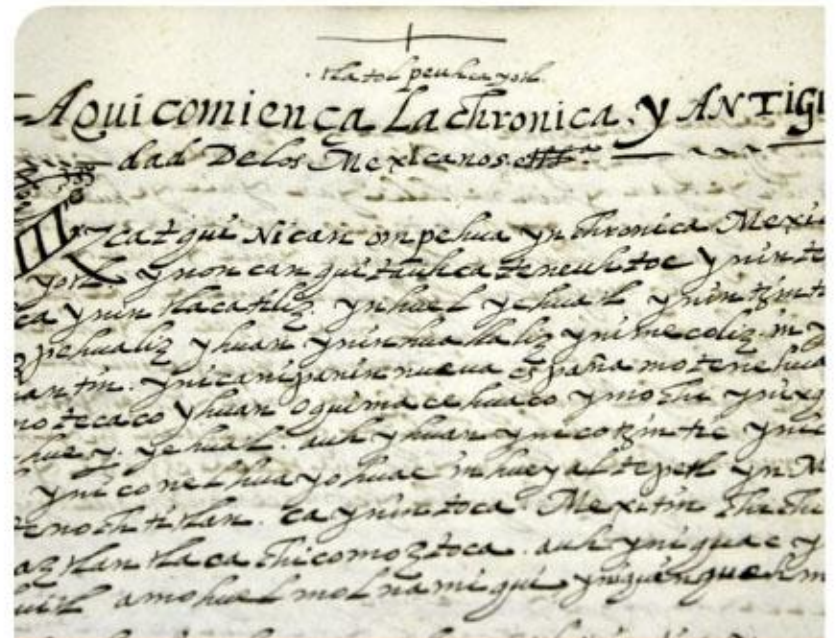 tlatolpeuhcayotl
Aqui comiença La chronica, y ANTIGU
dad Delos Mexicanos. etts.ª
Yzcatqui Nican ompehua yn chronica Mexic
yotl. ynoncan quitauhca teneuhtoc ynin te
ca ynin tlacatiliz. yn huel yehuatl ynin tzint
pehualiz yhuan ynin huallaliz yn imecoliz. in y
antin. ynican ipanin nueua españa motenehua
motecaco yhuan oquimacehuaco ymochi ynixq
huey. yehuatl. auh yhuan ynicotzintic ynic
ynic onelhuayohuac in huey altepetl yn M
tenochtitlan. ca ynin toca. Mexitin Chachi
aztlan tlaca chicomoztoca. auh yniquac y
huitl amo huel molnamiqui, yniquin quexm